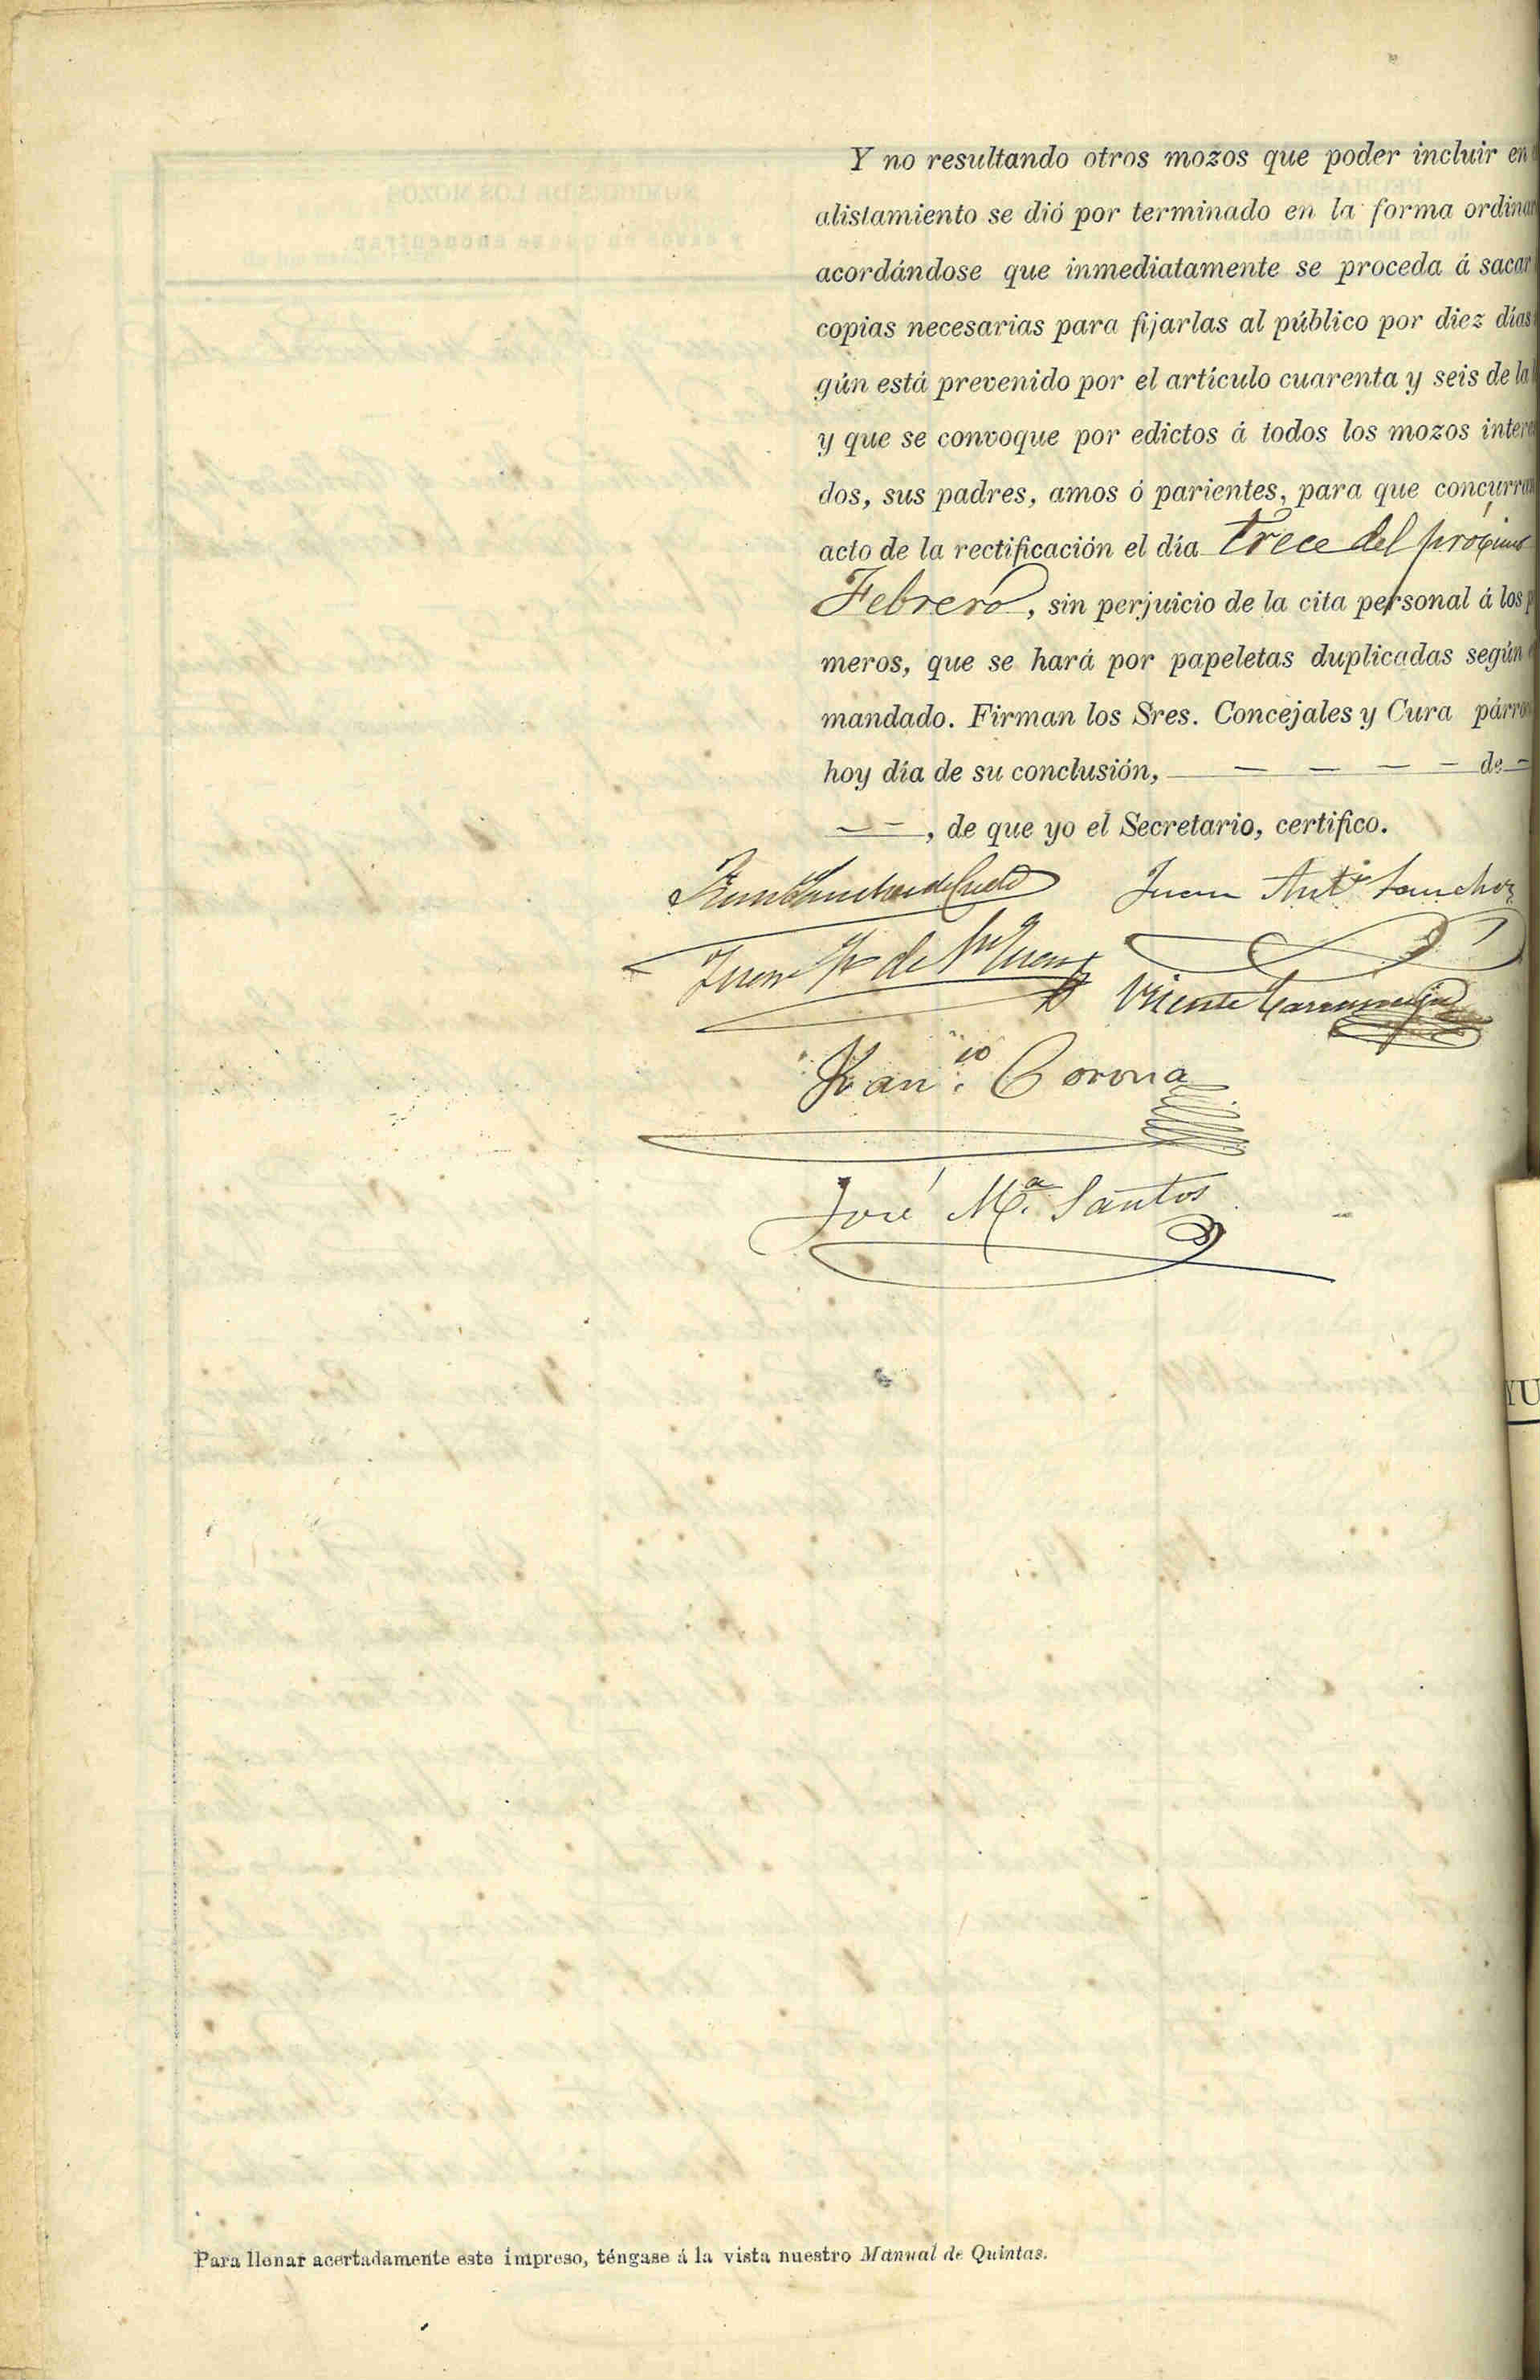 Y no resultando otros mozos que poder incluir en
alistamiento se dió por terminado en la forma ordinar
acordándose que inmediatamente se proceda á sacar
copias necesarias para fijarlas al público por diez días
gún está prevenido por el artículo cuarenta y seis de la
y que se convoque por edictos á todos los mozos intere
dos, sus padres, amos ó parientes, para que concurran
acto de la rectificación el día trece del próximo
Febrero, sin perjuicio de la cita personal á los p
meros, que se hará por papeletas duplicadas según
mandado. Firman los Sres. Concejales y Cura párro
hoy día de su conclusión, — — — — de —
— —, de que yo el Secretario, certifico.
Juan Ant.º Sanchez
Juan de
Vicente
Fran.co Corona
José M.ª Santos
YU
Para llenar acertadamente este impreso, téngase á la vista nuestro Manual de Quintas.